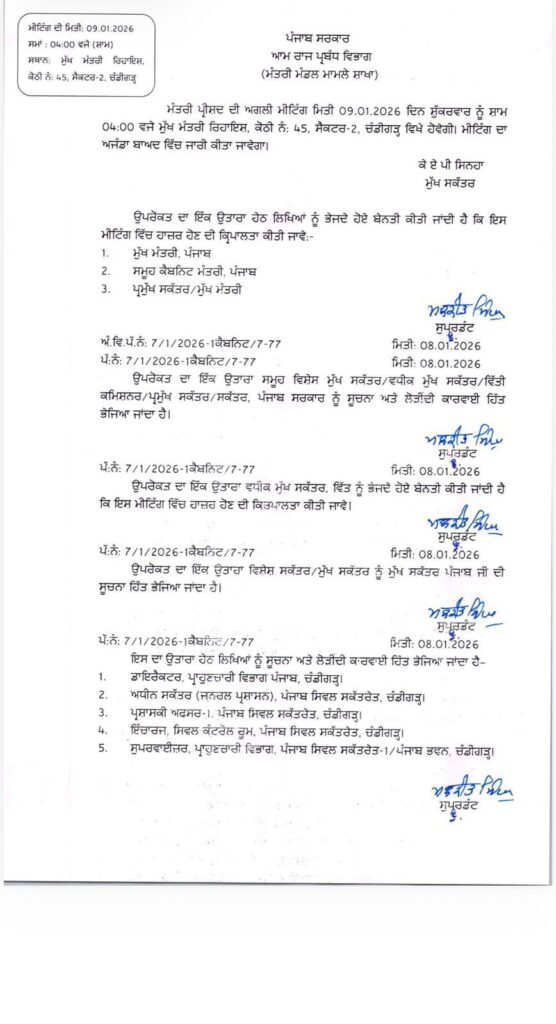 ਮੀਟਿੰਗ ਦੀ ਮਿਤੀ: 09.01.2026
ਸਮਾਂ : 04:00 ਵਜੇ (ਸ਼ਾਮ)
ਸਥਾਨ: ਮੁੱਖ ਮੰਤਰੀ ਰਿਹਾਇਸ਼,
ਕੋਠੀ ਨੰ: 45, ਸੈਕਟਰ-2, ਚੰਡੀਗੜ੍ਹ
ਪੰਜਾਬ ਸਰਕਾਰ
ਆਮ ਰਾਜ ਪ੍ਰਬੰਧ ਵਿਭਾਗ
(ਮੰਤਰੀ ਮੰਡਲ ਮਾਮਲੇ ਸ਼ਾਖਾ)
ਮੰਤਰੀ ਪ੍ਰੀਸ਼ਦ ਦੀ ਅਗਲੀ ਮੀਟਿੰਗ ਮਿਤੀ 09.01.2026 ਦਿਨ ਸ਼ੁੱਕਰਵਾਰ ਨੂੰ ਸ਼ਾਮ
04:00 ਵਜੇ ਮੁੱਖ ਮੰਤਰੀ ਰਿਹਾਇਸ਼, ਕੋਠੀ ਨੰ: 45, ਸੈਕਟਰ-2, ਚੰਡੀਗੜ੍ਹ ਵਿਖੇ ਹੋਵੇਗੀ। ਮੀਟਿੰਗ ਦਾ
ਅਜੰਡਾ ਬਾਅਦ ਵਿੱਚ ਜਾਰੀ ਕੀਤਾ ਜਾਵੇਗਾ।
ਕੇ ਏ ਪੀ ਸਿਨਹਾ
ਮੁੱਖ ਸਕੱਤਰ
ਉਪਰੋਕਤ ਦਾ ਇੱਕ ਉਤਾਰਾ ਹੇਠ ਲਿਖਿਆਂ ਨੂੰ ਭੇਜਦੇ ਹੋਏ ਬੇਨਤੀ ਕੀਤੀ ਜਾਂਦੀ ਹੈ ਕਿ ਇਸ
ਮੀਟਿੰਗ ਵਿੱਚ ਹਾਜ਼ਰ ਹੋਣ ਦੀ ਕ੍ਰਿਪਾਲਤਾ ਕੀਤੀ ਜਾਵੇ:-
1. ਮੁੱਖ ਮੰਤਰੀ, ਪੰਜਾਬ
2. ਸਮੂਹ ਕੈਬਨਿਟ ਮੰਤਰੀ, ਪੰਜਾਬ
3. ਪ੍ਰਮੁੱਖ ਸਕੱਤਰ/ਮੁੱਖ ਮੰਤਰੀ
ਸੁਪ੍ਰਡੰਟ
ਅੰ.ਵਿ.ਪੱ.ਨੰ: 7/1/2026-1ਕੈਬਨਿਟ/7-77 ਮਿਤੀ: 08.01.2026
ਪੱ:ਨੰ: 7/1/2026-1ਕੈਬਨਿਟ/7-77 ਮਿਤੀ: 08.01.2026
ਉਪਰੋਕਤ ਦਾ ਇੱਕ ਉਤਾਰਾ ਸਮੂਹ ਵਿਸ਼ੇਸ ਮੁੱਖ ਸਕੱਤਰ/ਵਧੀਕ ਮੁੱਖ ਸਕੱਤਰ/ਵਿੱਤੀ
ਕਮਿਸ਼ਨਰ/ਪ੍ਰਮੁੱਖ ਸਕੱਤਰ/ਸਕੱਤਰ, ਪੰਜਾਬ ਸਰਕਾਰ ਨੂੰ ਸੂਚਨਾ ਅਤੇ ਲੋੜੀਂਦੀ ਕਾਰਵਾਈ ਹਿੱਤ
ਭੇਜਿਆ ਜਾਂਦਾ ਹੈ।
ਸੁਪ੍ਰਡੰਟ
ਪੱ:ਨੰ: 7/1/2026-1ਕੈਬਨਿਟ/7-77 ਮਿਤੀ: 08.01.2026
ਉਪਰੋਕਤ ਦਾ ਇੱਕ ਉਤਾਰਾ ਵਧੀਕ ਮੁੱਖ ਸਕੱਤਰ, ਵਿੱਤ ਨੂੰ ਭੇਜਦੇ ਹੋਏ ਬੇਨਤੀ ਕੀਤੀ ਜਾਂਦੀ ਹੈ
ਕਿ ਇਸ ਮੀਟਿੰਗ ਵਿੱਚ ਹਾਜ਼ਰ ਹੋਣ ਦੀ ਕਿਰਪਾਲਤਾ ਕੀਤੀ ਜਾਵੇ।
ਸੁਪ੍ਰਡੰਟ
ਪੱ:ਨੰ: 7/1/2026-1ਕੈਬਨਿਟ/7-77 ਮਿਤੀ: 08.01.2026
ਉਪਰੋਕਤ ਦਾ ਇੱਕ ਉਤਾਹਾ ਵਿਸ਼ੇਸ਼ ਸਕੱਤਰ/ਮੁੱਖ ਸਕੱਤਰ ਨੂੰ ਮੁੱਖ ਸਕੱਤਰ ਪੰਜਾਬ ਜੀ ਦੀ
ਸੂਚਨਾ ਹਿੱਤ ਭੇਜਿਆ ਜਾਂਦਾ ਹੈ।
ਸੁਪ੍ਰਡੰਟ
ਪੱ:ਨੰ: 7/1/2026-1ਕੈਬਨਿਟ/7-77 ਮਿਤੀ: 08.01.2026
ਇਸ ਦਾ ਉਤਾਰਾ ਹੇਠ ਲਿਖਿਆਂ ਨੂੰ ਸੂਚਨਾ ਅਤੇ ਲੋੜੀਂਦੀ ਕਾਰਵਾਈ ਹਿੱਤ ਭੇਜਿਆ ਜਾਂਦਾ ਹੈ-
1. ਡਾਇਰੈਕਟਰ, ਪ੍ਰਾਹੁਣਚਾਰੀ ਵਿਭਾਗ ਪੰਜਾਬ, ਚੰਡੀਗੜ੍ਹ।
2. ਅਧੀਨ ਸਕੱਤਰ (ਜਨਰਲ ਪ੍ਰਸ਼ਾਸਨ), ਪੰਜਾਬ ਸਿਵਲ ਸਕੱਤਰੇਤ, ਚੰਡੀਗੜ੍ਹ।
3. ਪ੍ਰਸ਼ਾਸਕੀ ਅਫਸਰ-1, ਪੰਜਾਬ ਸਿਵਲ ਸਕੱਤਰੇਤ, ਚੰਡੀਗੜ੍ਹ।
4. ਇੰਚਾਰਜ, ਸਿਵਲ ਕੰਟਰੋਲ ਰੂਮ, ਪੰਜਾਬ ਸਿਵਲ ਸਕੱਤਰੇਤ, ਚੰਡੀਗੜ੍ਹ।
5. ਸੁਪਰਵਾਈਜ਼ਰ, ਪ੍ਰਾਹੁਣਚਾਰੀ ਵਿਭਾਗ, ਪੰਜਾਬ ਸਿਵਲ ਸਕੱਤਰੇਤ-1/ਪੰਜਾਬ ਭਵਨ, ਚੰਡੀਗੜ੍ਹ।
ਸੁਪ੍ਰਡੰਟ